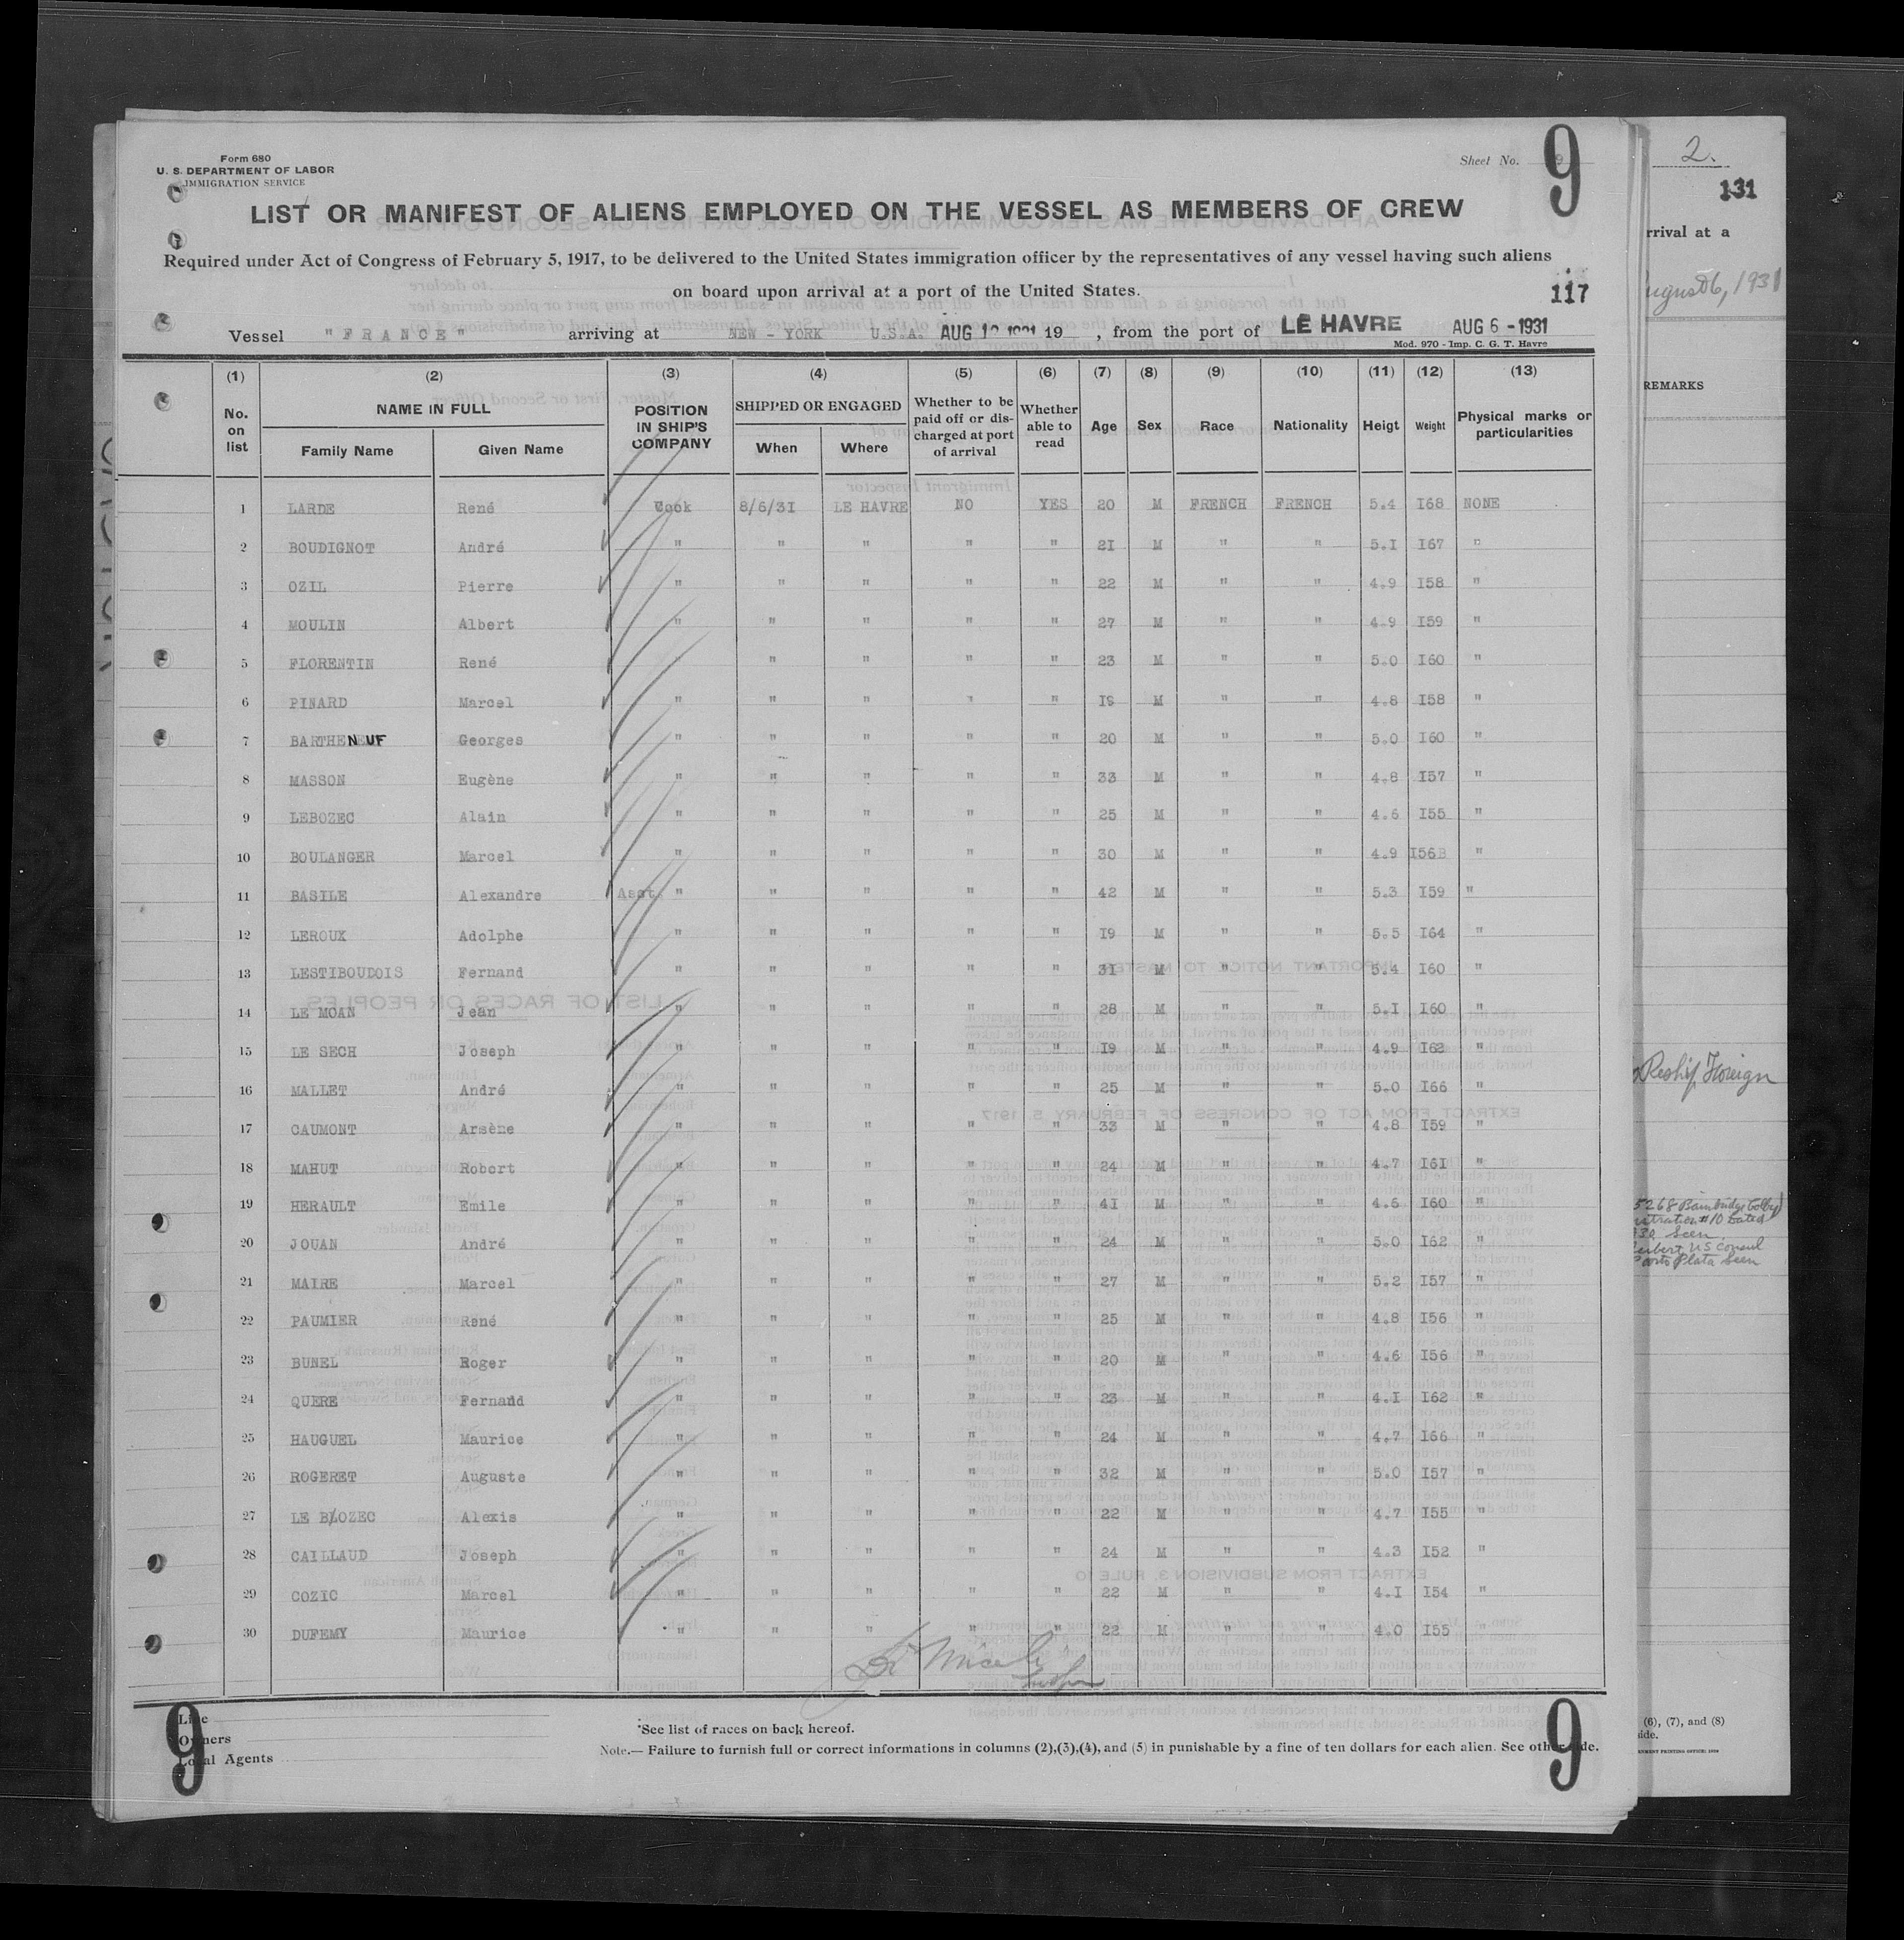 Form 680
U. S. DEPARTMENT OF LABOR
IMMIGRATION SERVICE
Sheet No. 9
9
2.
131
LIST OR MANIFEST OF ALIENS EMPLOYED ON THE VESSEL AS MEMBERS OF CREW
Required under Act of Congress of February 5, 1917, to be delivered to the United States immigration officer by the representatives of any vessel having such aliens
on board upon arrival at a port of the United States.
117
rrival at a
6, 1931
Vessel "FRANCE" arriving at NEW - YORK U.S.A. AUG 19 , from the port of LE HAVRE AUG 6 - 1931
Mod. 970 - Imp. C. G. T. Havre
(1) (2) (3) (4) (5) (6) (7) (8) (9) (10) (11) (12) (13)
No. on list NAME IN FULL Family Name Given Name POSITION IN SHIP'S COMPANY SHIPPED OR ENGAGED When Where Whether to be paid off or discharged at port of arrival Whether able to read Age Sex Race Nationality Heigt Weight Physical marks or particularities
REMARKS
1 LARDE René Cook 8/6/3I LE HAVRE NO YES 20 M FRENCH FRENCH 5.4 I68 NONE
2 BOUDIGNOT André " " " " " 2I M " " 5.I I67 "
3 OZIL Pierre " " " " " 22 M " " 4.9 I58 "
4 MOULIN Albert " " " " " 27 M " " 4.9 I59 "
5 FLORENTIN René " " " " " 23 M " " 5.0 I60 "
6 PINARD Marcel " " " " " M " " 4.8 I58 "
7 BARTHENEUF Georges " " " " " 20 M " " 5.0 I60 "
8 MASSON Eugène " " " " " 33 M " " 4.8 I57 "
9 LEBOZEC Alain " " " " " 25 M " " 4.6 I55 "
10 BOULANGER Marcel " " " " " 30 M " " 4.9 I56 "
11 BASILE Alexandre Asst " " " " " 42 M " " 5.3 I59 "
12 LEROUX Adolphe " " " " " I9 M " " 5.5 I64 "
13 LESTIBOUDOIS Fernand " " " " " 3I M " " 5.4 I60 "
14 LE MOAN Jean " " " " " 28 M " " 5.I I60 "
15 LE SECH Joseph " " " " " I9 M " " 4.9 I62 "
16 MALLET André " " " " " 25 M " " 5.0 I66 "
17 CAUMONT Arsène " " " " " 33 M " " 4.8 I59 "
18 MAHUT Robert " " " " " 24 M " " 4.7 I6I "
19 HERAULT Emile " " " " " 4I M " " I60 "
20 JOUAN André " " " " " 24 M " " 5.0 I62 "
21 MAIRE Marcel " " " " " 27 M " " 5.2 I57 "
22 PAUMIER René " " " " " 25 M " " 4.8 I56 "
23 BUNEL Roger " " " " " 20 M " " 4.6 I56 "
24 QUERE Fernand " " " " " 23 M " " 4.I I62 "
25 HAUGUEL Maurice " " " " " 24 M " " 4.7 I66 "
26 ROGERET Auguste " " " " " 32 M " " 5.0 I57 "
27 LE BLOZEC Alexis " " " " " 22 M " " 4.7 I55 "
28 CAILLAUD Joseph " " " " " 24 M " " 4.3 I52 "
29 COZIC Marcel " " " " " 22 M " " 4.I I54 "
30 DUFEMY Maurice " " " " " 22 M " " 4.0 I55 "
Reship Foreign
5268 Bainbridge Colby
#10 Dated
Seen
US Consul
Plata Seen
Line
Owners
Local Agents
*See list of races on back hereof.
Note.— Failure to furnish full or correct informations in columns (2),(3),(4), and (5) in punishable by a fine of ten dollars for each alien. See other side.
9
9
(6), (7), and (8)
side.